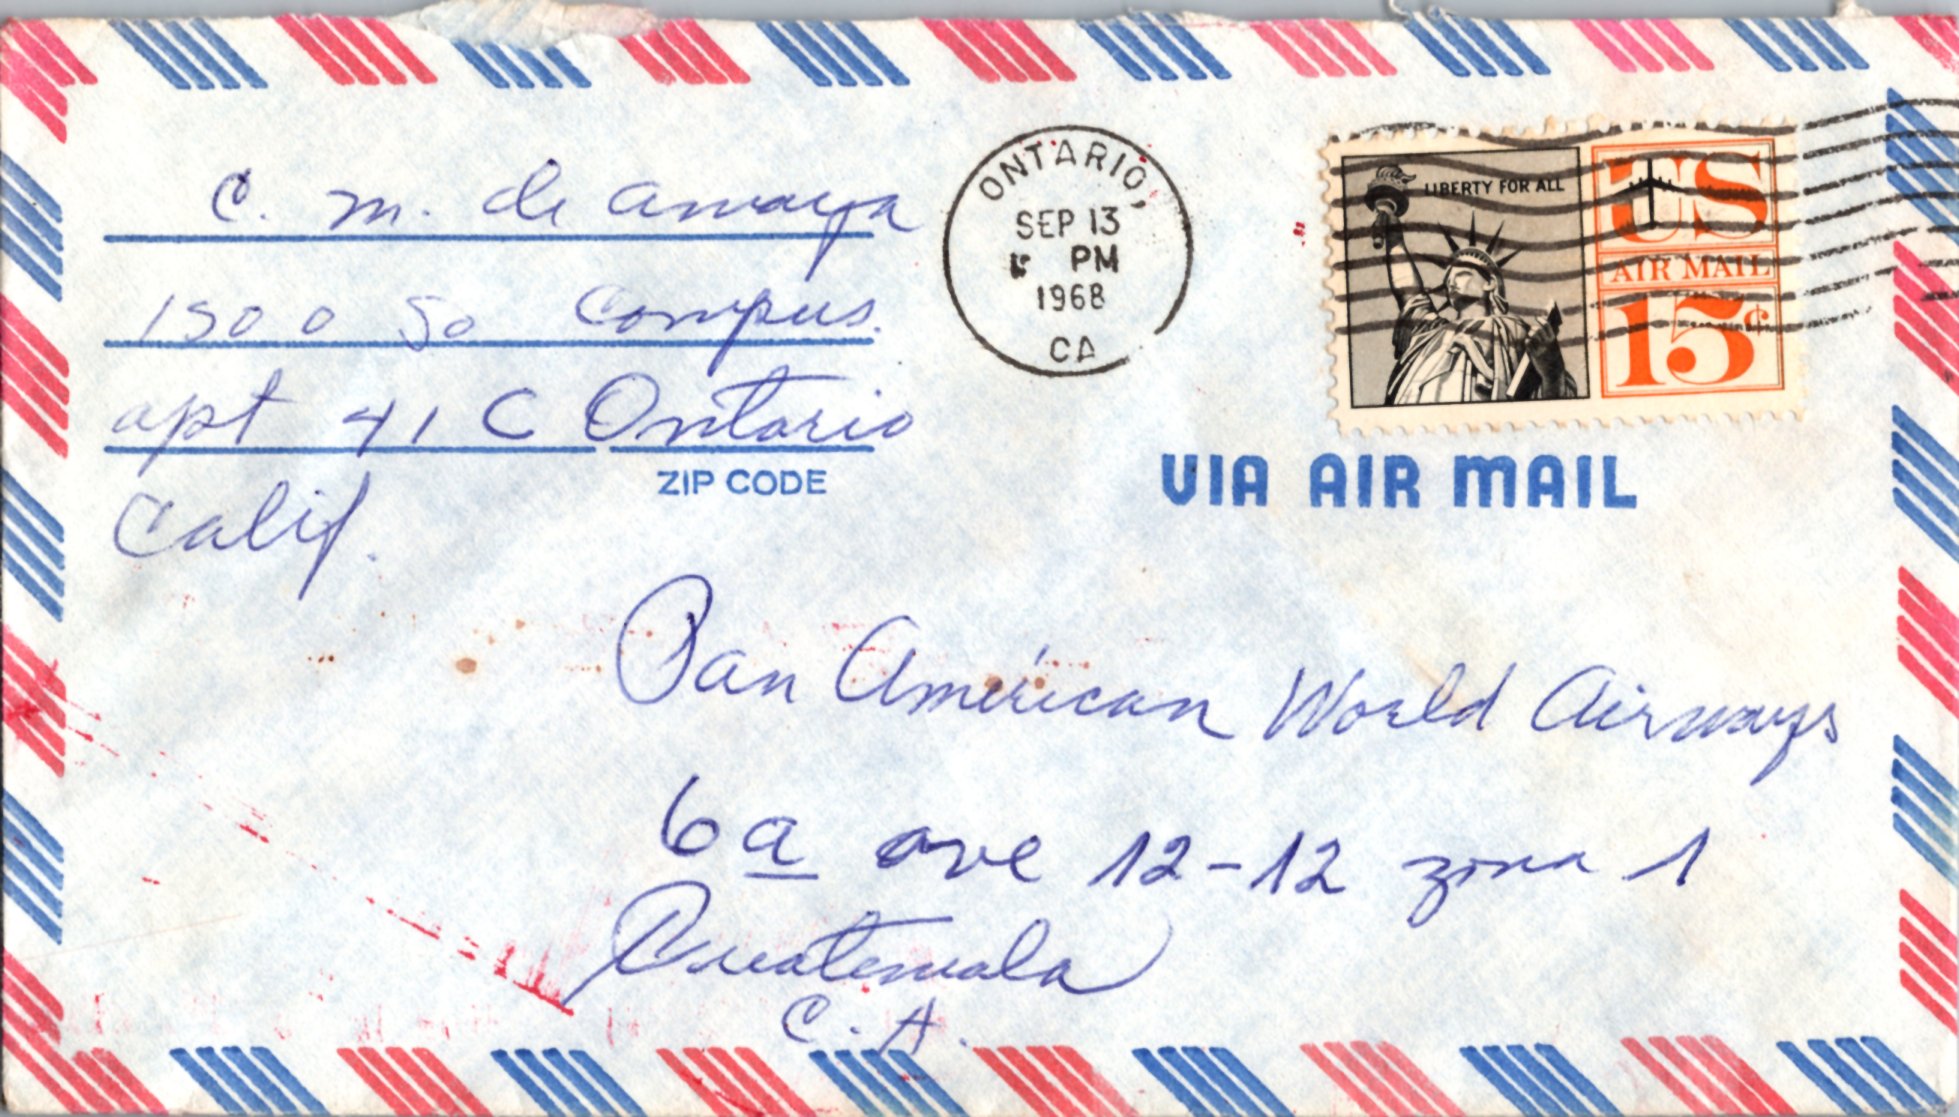 C. M. de Amaya
1500 So Campus.
apt 41 C Ontario
ZIP CODE
Calif.
ONTARIO,
SEP 13
PM
1968
CA
LIBERTY FOR ALL
US
AIR MAIL
15¢
VIA AIR MAIL
Pan Américan World Airways
6a ave 12-12 zona 1
Guatemala
C. A.